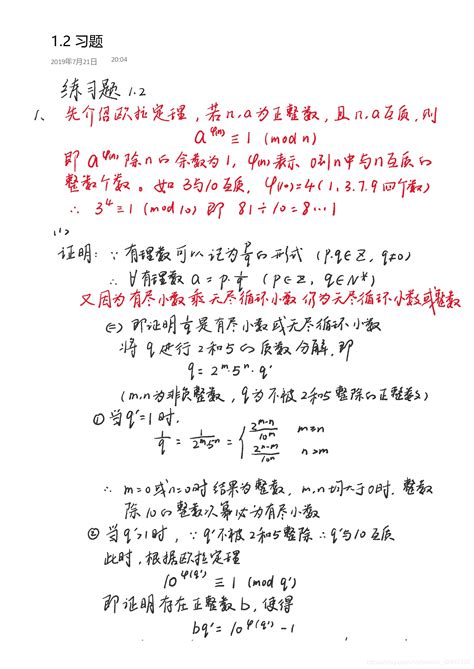 1.2 习题
2019年7月21日 20:04
练习题 1.2
1、先介绍欧拉定理，若n,a为正整数，且n,a互质，则
a^φ(n) ≡ 1 (mod n)
即 a^φ(n) 除n的余数为1，φ(n)表示 0到n中与n互质的
整数个数。如 3与10互质，φ(10)=4(1,3,7,9四个数)
∴ 3^4≡1 (mod 10) 即 81÷10=8…1
(1)
证明：∵有理数可以记为p/q的形式 (p,q∈Z, q≠0)
∴ ∀有理数 a = p·1/q (p∈Z, q∈N*)
又因为有尽小数乘无尽循环小数仍为无尽循环小数或整数
⇔ 即证明1/q是有尽小数或无尽循环小数
将 q 进行 2和5的质数分解，即
q = 2^m·5^n·q'
(m,n为非负整数，q'为不被2和5整除的正整数)
① 当q'=1时，
1/q = 1/(2^m 5^n) = { 2^(m-n)/10^m m≥n
2^(n-m)/10^n n>m
∴ m=0或n=0时结果为整数，m,n均大于0时，整数
除10的整数次幂必为有尽小数
② 当q'>1时，∵ q'不被2和5整除 ∴q'与10互质
此时，根据欧拉定理
10^φ(q') ≡ 1 (mod q')
即证明存在正整数 b，使得
bq' = 10^φ(q') - 1